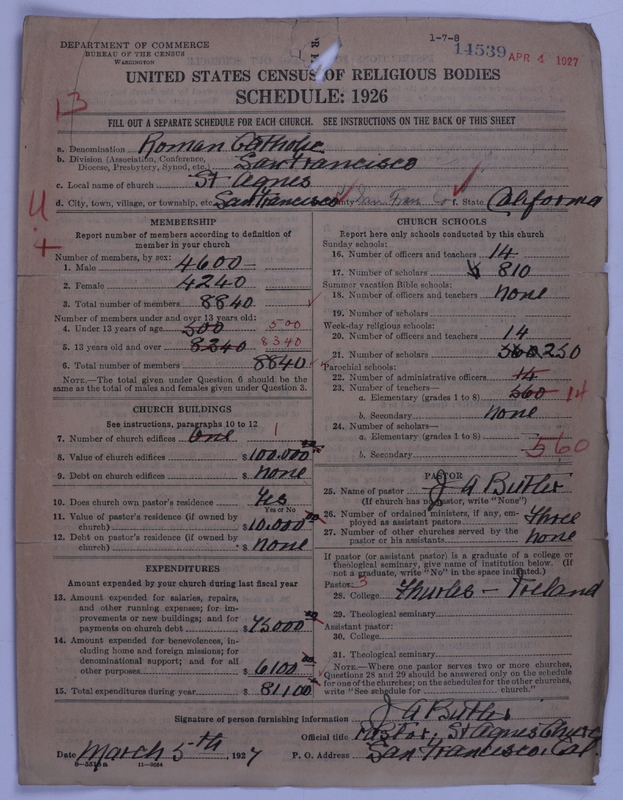 1-7-8
DEPARTMENT OF COMMERCE
BUREAU OF THE CENSUS
WASHINGTON
14539 APR 4 1927
UNITED STATES CENSUS OF RELIGIOUS BODIES
SCHEDULE: 1926
13
FILL OUT A SEPARATE SCHEDULE FOR EACH CHURCH. SEE INSTRUCTIONS ON THE BACK OF THIS SHEET
a. Denomination Roman Catholic
b. Division (Association, Conference, Diocese, Presbytery, Synod, etc.) San Francisco
c. Local name of church St Agnes
d. City, town, village, or township, etc. San Francisco County San Fran Co f. State California
MEMBERSHIP
Report number of members according to definition of member in your church
Number of members, by sex:
1. Male 4600
2. Female 4240
3. Total number of members 8840
Number of members under and over 13 years old:
4. Under 13 years of age 500 500
5. 13 years old and over 8340 8340
6. Total number of members 8840
NOTE.—The total given under Question 6 should be the same as the total of males and females given under Question 3.
CHURCH BUILDINGS
See instructions, paragraphs 10 to 12
7. Number of church edifices One 1
8. Value of church edifices $100.000
9. Debt on church edifices $ None
10. Does church own pastor's residence Yes
Yes or No
11. Value of pastor's residence (if owned by church) $10.000
12. Debt on pastor's residence (if owned by church) $ None
EXPENDITURES
Amount expended by your church during last fiscal year
13. Amount expended for salaries, repairs, and other running expenses; for improvements or new buildings; and for payments on church debt $75000
14. Amount expended for benevolences, including home and foreign missions; for denominational support; and for all other purposes $6100
15. Total expenditures during year $81100
CHURCH SCHOOLS
Report here only schools conducted by this church
Sunday schools:
16. Number of officers and teachers 14
17. Number of scholars 810
Summer vacation Bible schools:
18. Number of officers and teachers None
19. Number of scholars
Week-day religious schools:
20. Number of officers and teachers 14
21. Number of scholars 250
Parochial schools:
22. Number of administrative officers 14
23. Number of teachers—
a. Elementary (grades 1 to 8) 560 14
b. Secondary None
24. Number of scholars—
a. Elementary (grades 1 to 8) 560
b. Secondary
PASTOR
25. Name of pastor J A Butler
(If church has no pastor, write "None")
26. Number of ordained ministers, if any, employed as assistant pastors Three
27. Number of other churches served by the pastor or his assistants None
If pastor (or assistant pastor) is a graduate of a college or theological seminary, give name of institution below. (If not a graduate, write "No" in the space indicated.)
Pastor: 3
28. College Thurles - Ireland
29. Theological seminary
Assistant pastor:
30. College
31. Theological seminary
NOTE.—Where one pastor serves two or more churches, Questions 28 and 29 should be answered only on the schedule for one of the churches; on the schedules for the other churches, write "See schedule for church."
Signature of person furnishing information J A Butler
Official title Pastor, St Agnes Church
Date March 5th, 1927 P. O. Address San Francisco, Cal
8-5518a 11-9084